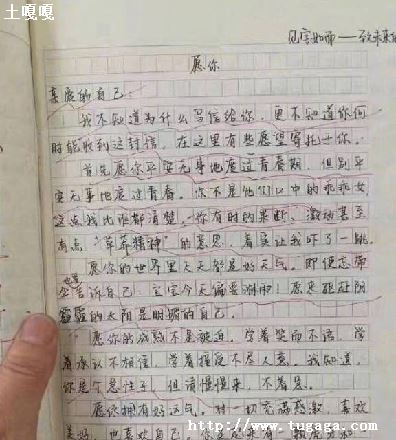 土嘎嘎
见字如面——致未来的
愿你
亲爱的自己:
我不知道为什么写信给你,更不知道你何
时能收到这封信,在这里有些愿望寄托于你。
首先愿你平安无事地度过青春期,但别平
安无事地度过青春。你不是他们口中的乖乖女,
这点我比谁都清楚。你有时的果断、激动甚至
有点“草莽精神”的意思,着实让我吓了一跳。
愿你的世界里天天都是好天气。即便忘带
伞也要告诉自己:宝宝今天偏要淋雨!原来驱赶阴
霾的太阳是明媚的自己。
愿你的成熟不是被迫,学着笑而不语,学
着承认不相信,学着接受不尽人意。我知道,
你是个急性子,但请慢慢来,不着急。
愿你拥有好运气。对一切充满感激,喜欢
美好,也喜欢自己。
http://www.tugaga.com